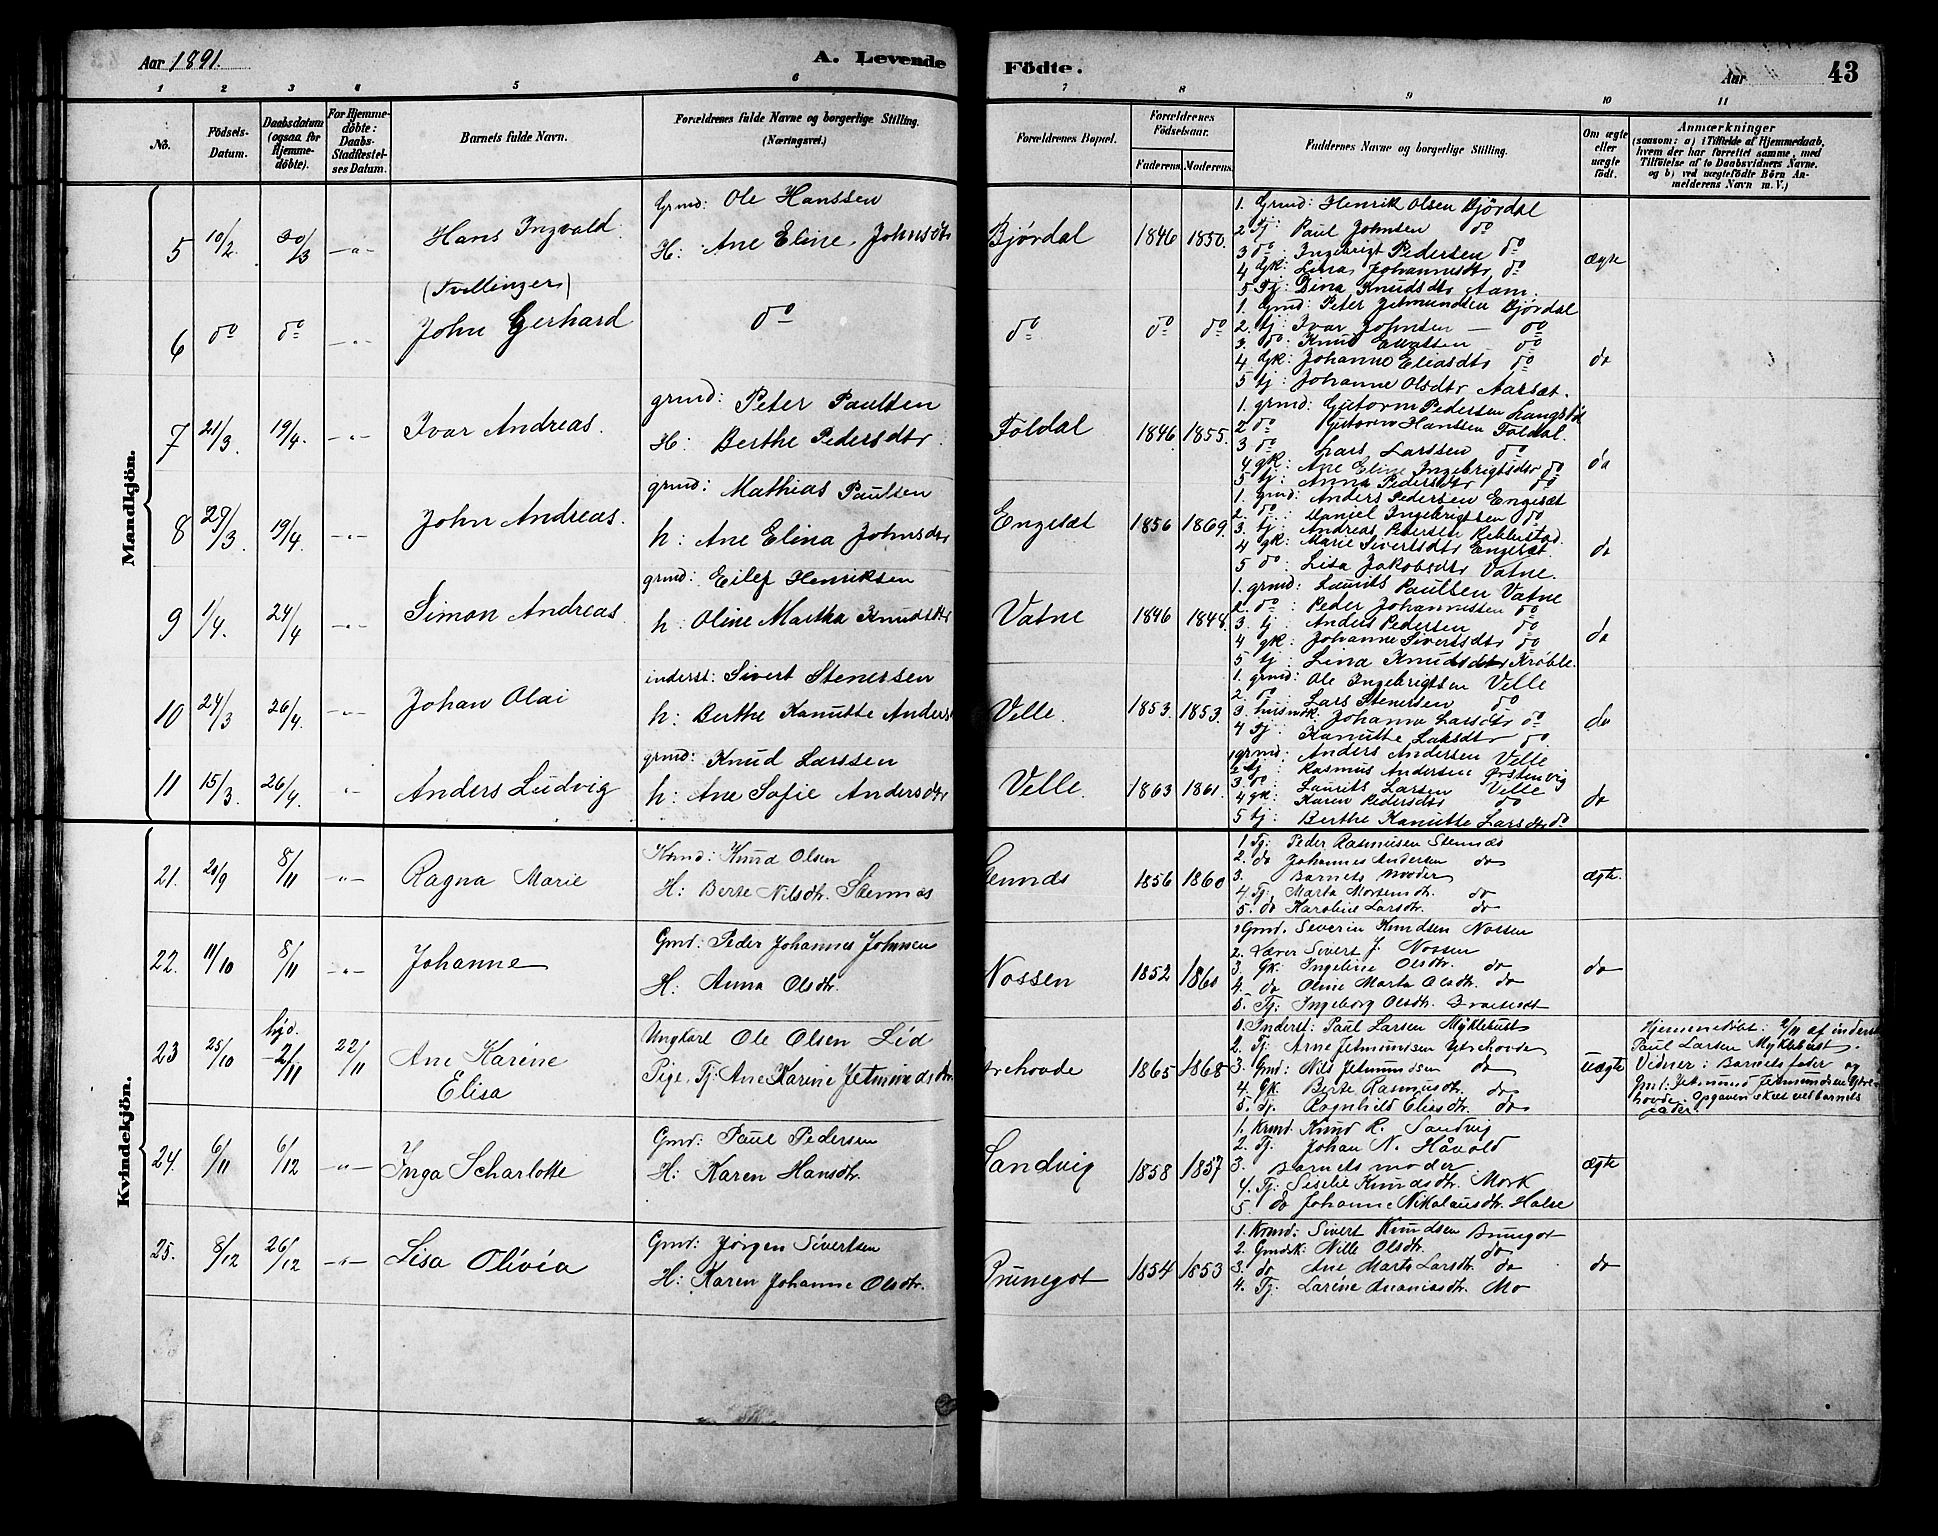 Aar 1891.
A. Levende
Födte.
Aar
43
1 2 3 4 5 6 7 8 9 10 11
No.
Födsels-Datum.
Daabsdatum (ogsaa for Hjemme-döbte).
For Hjemme-döbte: Daabs-Stadfæstel-ses Datum.
Barnets fulde Navn.
Forældrenes fulde Navne og borgerlige Stilling.
(Næringsvei.)
Forældrenes Bopæl.
Forældrenes Födselsaar.
Faderens. Moderens.
Faddernes Navne og borgerlige Stilling.
Om ægte eller uægte födt.
Anmærkninger
(saasom: a) i Tilfælde af Hjemmedaab,
hvem der har forrettet samme, med
Tilföielse af to Daabsvidners Navne.
og b) ved uægtefödte Börn An-
melderens Navn m. V.)
Mandkjön.
5 10/2 30/3 -"- Hans Ingvald
(Tvillinger)
Grmd: Ole Hanssen
H: Ane Eline Johnsdtr
Bjørdal 1846 1850.
1. Grmd: Henrik Olsen Bjørdal
2 Tj: Paul Johnsen do
3 do: Ingebrigt Pedersen do
4 gk: Lina Johannesdtr do
5 Tj: Dina Knudsdtr Aam.
ægte
6 do do -"- John Gerhard
do
do do do
1. Grmd: Peter Jetmundsen Bjørdal
2. tj: Ivar Johnsen — do
3. do: Knud do
4 gk: Johanne Eliasdtr do
5 tj: Johanne Olsdtr Aarsæt.
do
7 21/3. 19/4. -"- Ivar Andreas.
grmd: Peter Paulsen
H: Berthe Pedersdtr.
Foldal 1846 1855.
1. grmd: Gutorm Pedersen
2 do Gutorm Hanssen Foldal.
3 do Lars Larssen do
4 gk: Ane Eline Ingebrigtsdtr do
5 tj: Anna Pedersdtr do
do
8 29/3. 19/4. -"- John Andreas.
grmd: Mathias Paulsen
h: Ane Elina Johnsdtr
Engesæt 1856 1869.
1. Grmd: Anders Pedersen Engesæt
2. do: Daniel Ingebrigtsen do
3. tj: Andreas Pedersen
4 gk: Marie Sivertsdtr Engesæt.
5 do Lisa Jakobsdtr Vatne.
do
9 1/4. 24/4 -"- Simon Andreas.
grmd: Eilef Henriksen
h: Oline Martha Knudsdtr
Vatne 1846 1848.
1. grmd: Laurits Paulsen Vatne
2. do: Peder Johannessen do
3. tj: Anders Pedersen do
4 gk: Johanne Sivertsdtr do
5 tj: Lina Knudsdtr Krøble.
do
10 24/3 26/4. -"- Johan Olai
inderst: Sivert Stenersen
h: Berthe Kanutte Anders
Velle. 1853. 1853.
1. grmd: Ole Ingebrigtsen Velle
2. do Lars Stenersen do
3. husmdk. Johanna Larsdtr do
4 Tj: Kanutte Larsdtr do
do
11 15/3. 26/4. -"- Anders Ludvig
grmd: Knud Larssen
h: Ane Sofie Andersdtr
Velle. 1863 1861.
1 grmd: Anders Andersen Velle
2 tj: Rasmus Andersen Ørstenvig
3. do: Laurits Larsen Velle
4 gk: Karen Pedersdtr do
5 tj: Berthe Kanutte Larsdtr do
do
Kvindekjön.
21. 20/9 8/11 -"- Ragna Marie
Krmd: Knud Olsen
H: Berte Nilsdtr. Stennæs
1856 1860
1. Tj: Peder Rasmusen Stennæs
2. do Johannes Andersen do
3. Barnets moder
4 Tj: Marta Mortensdtr. do
5. do Karoline Larsdtr. do
ægte.
22. 11/10 8/11 -"- Johanne
Gmd: Peder Johannes Johnsen
H: Anna Olsdtr.
Nossen 1852 1860
1 Gmd. Severin Knudsen Nossen
2. Lærer Sivert J. Nossen
3. Gk. Ingeline Olsdtr. do
4. do Oline Marta Olsdtr. do
5. Tj: Ingeborg Olsdtr.
do
23 25/10 hjd. 2/11 22/11 Ane Karine
Elisa
Ungkarl Ole Olsen Lid
Pige, Tj: Ane Karine Jetmundsdtr.
1865 1868
1. Inderst: Paul Larsen Myklebust
2. Tj: Arne Jetmundsen Ytrehovde
3. Gmd: Nils Jetmundsen do
4. Gk Berte Rasmusdtr. do
5. Tj. Ragnhild Eliasdtr. do
uægte
Hjemmedøbt: 2/11 af inderst
Paul Larsen Myklebust.
Vidner: Barnets fader og
Gmd: Jetmund Jetmundsen Ytre-
hovde. Opgaven skeet ved barnets
fader.
24. 6/11 6/12 -"- Inga Scharlotte
Gmd: Paul Pedersen
H: Karen Hansdtr.
Sandvig 1858 1857
1. Krmd. Knud R. Sandvig
2. Tj. Johan N. Håvold
3. Barnets moder
4. Tj: Siselie Knudsdtr. Mork
5. do Johanne Nikolausdtr. Halse
ægte
25. 8/12 26/12 -"- Lisa Olivia
Gmd: Jørgen Sivertsen
H: Karen Johanne Olsdtr.
Brunegot 1854 1853
1. Krmd: Sivert Knudsen Brunegot
2. Gmdsk: Nille Olsdtr. do
3. do Ane Marta Larsdtr. do
4. Tj. Larine Ananiasdtr. Mo
do